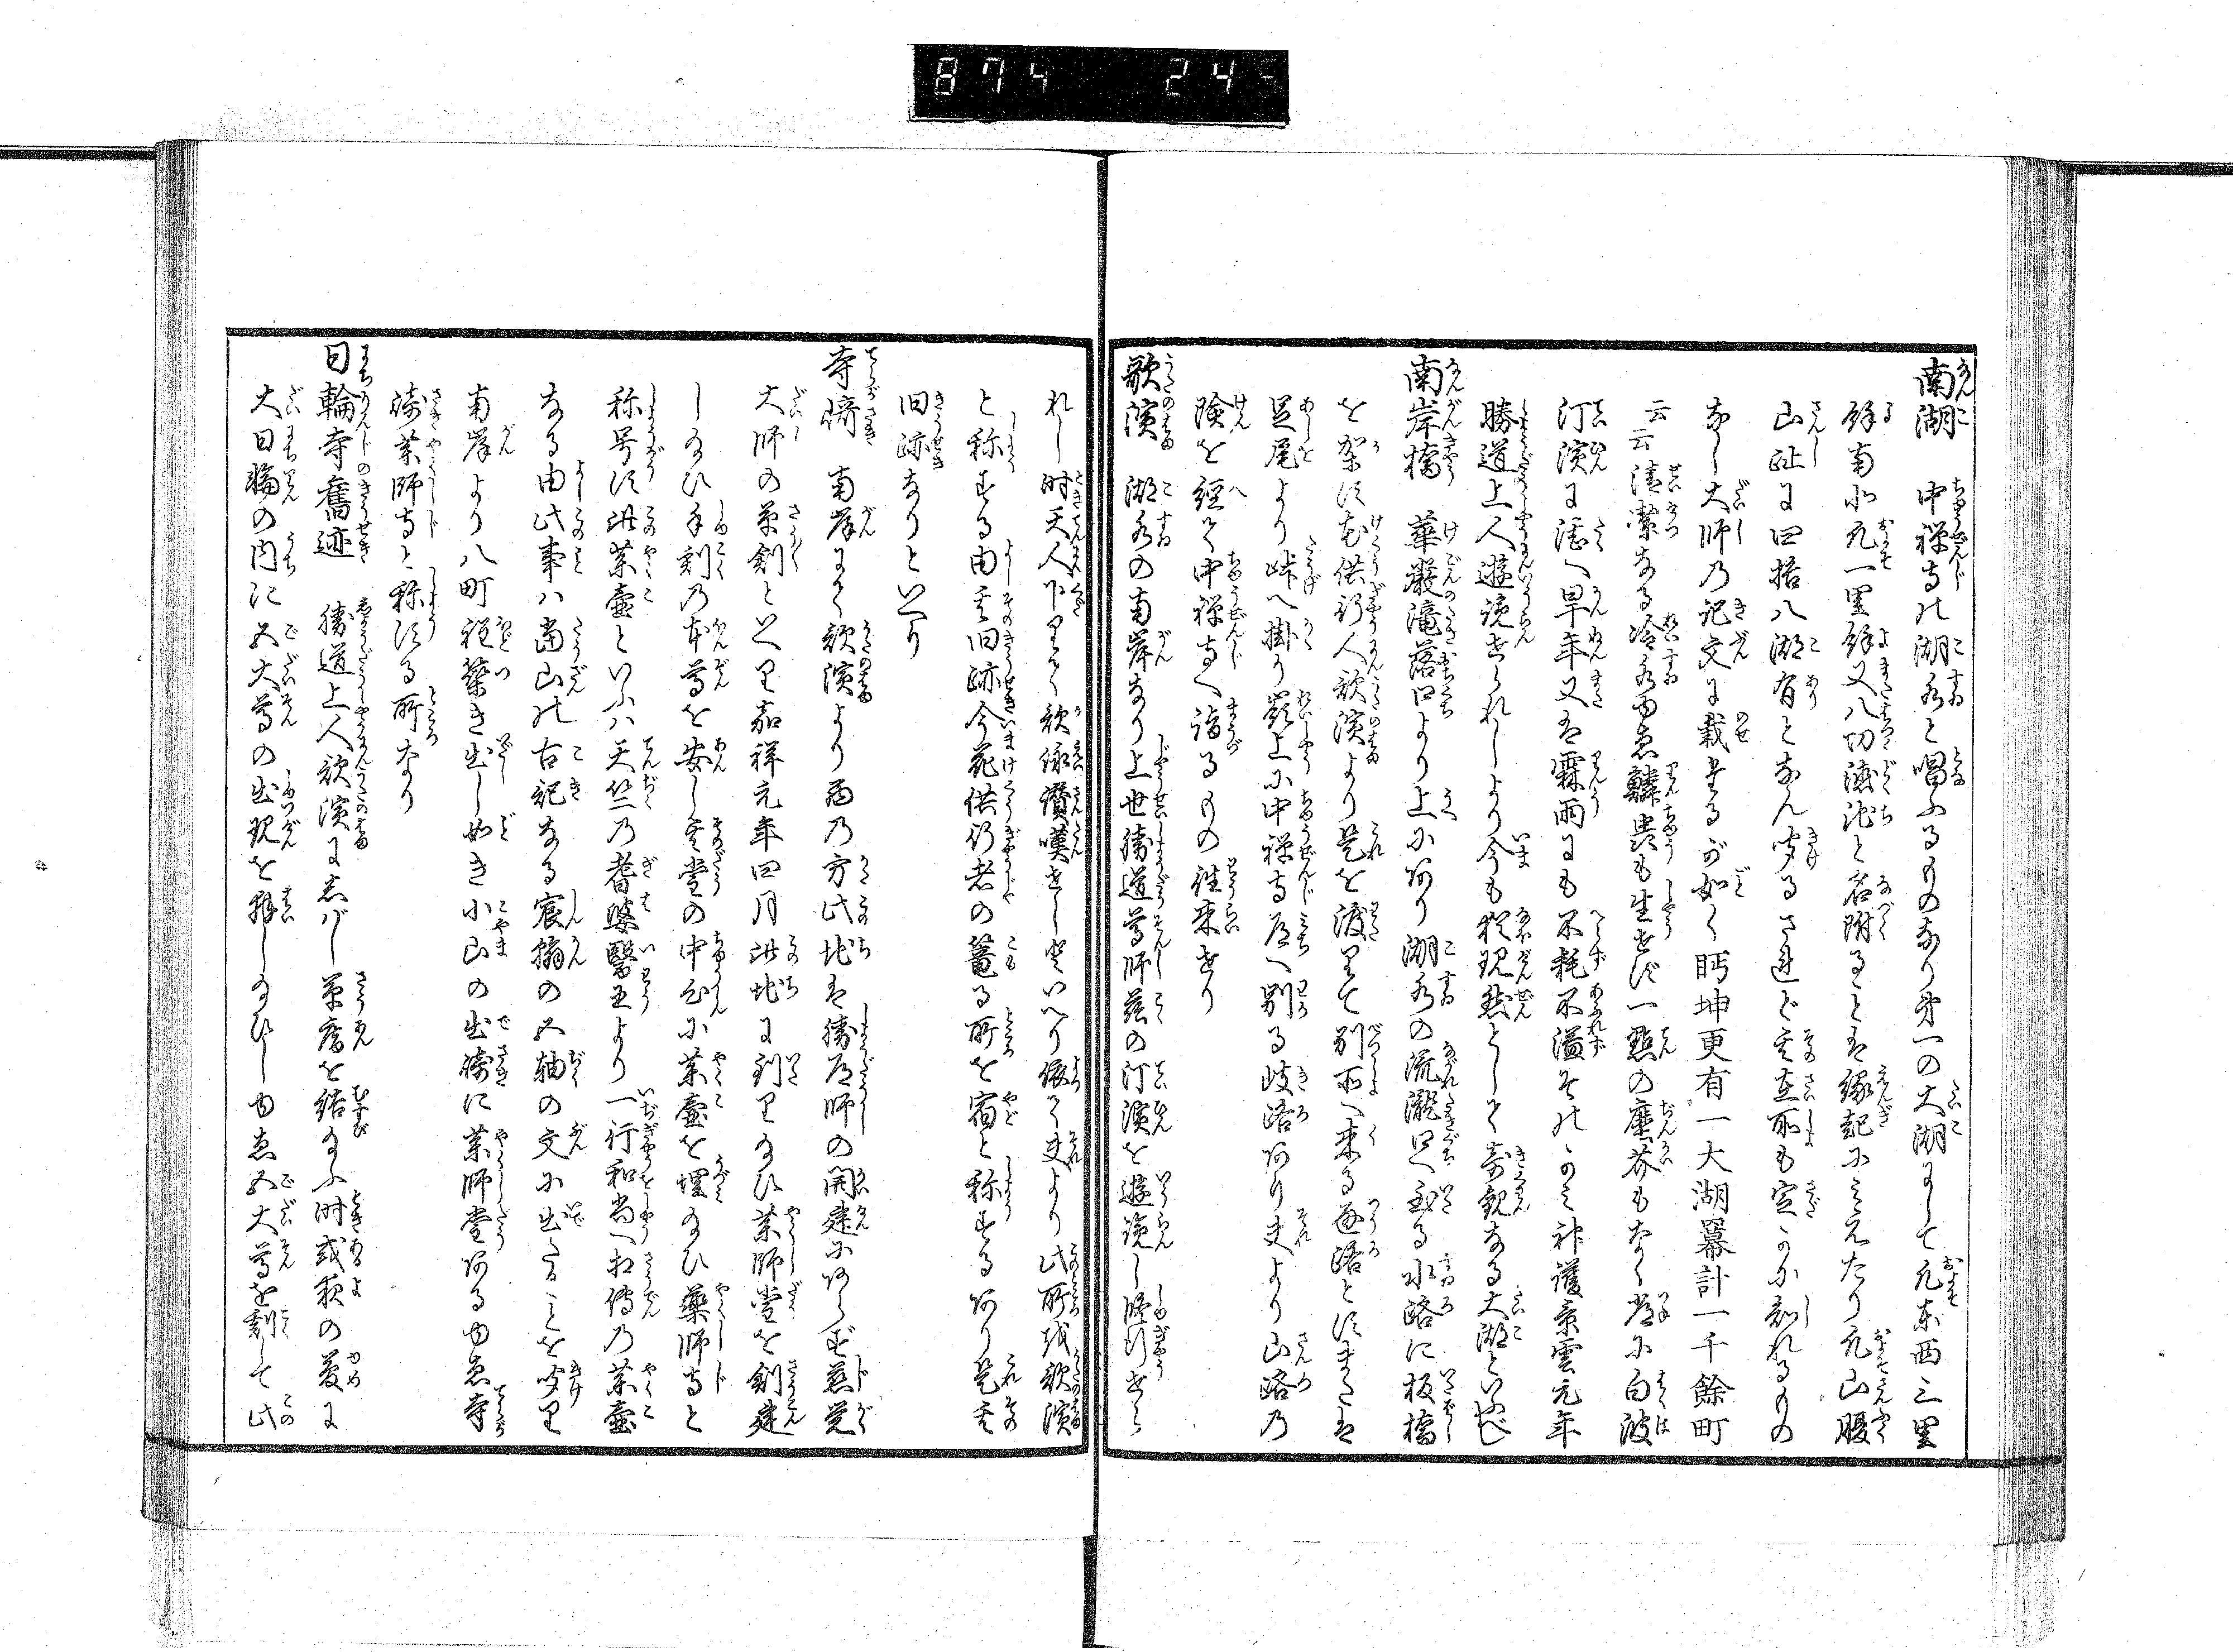 874 24
南湖 中禅寺の湖水と唱ふるものなり第一の大湖にして凡東西三里
餘南北凡一里餘又八功徳池と名附ることは縁起にみえたり凡山腹
山趾に四拾八湖有となん聞けるされど其在所も定かに知れるもの
なし大師の記文に載するが如く眄坤更有一大湖冪計一千餘町
云云清潔なる冷水ゆゑ鱗虫も生せず一点の塵芥もなく常に白波
汀濱に湛へ旱年又は霖雨にも不耗不溢そのかみ神護景雲元年
勝道上人遊覧せられしより今も猶現然として奇観なる大湖といふべし
南岸橋 華厳滝落口より上にあり湖水の流瀧口へ至る水路に板橋
を架す花供行人歌濱より是を渡りて別所へ来る通路とすまたは
足尾より峠へ掛り嶺上に中禅寺道へ別る岐路あり夫より山路の
険を経て中禅寺へ詣るもの往来せり
歌濱 湖水の南岸なり上世勝道尊師茲の汀濱を遊覧し経行せら
れし時天人下りて歌詠讃嘆せしといへり依て夫より此所を歌濱
と称する由其旧跡今花供行者の篭る所を宿と称するあり是其
旧跡なりといへり
寺﨑 南岸にて歌濱より西の方此地は勝道師の開建にあらず慈覚
大師の草創といへり嘉祥元年四月此地に到りたまひ薬師堂を創建
したまひ手刻の本尊を安し其堂の中央に薬壺を埋たまひ藥師寺と
称号す此薬壺といふは天竺の耆婆醫王より一行和尚へ相傳の薬壺
なる由此事は當山の古記なる宸翰の五軸の文に出たることを聞けり
南岸より八町程築き出し如き小山の出﨑に薬師堂あるゆゑ寺
﨑薬師寺と称する所なり
日輪寺舊迹 勝道上人歌濱にゑばし草庵を結たふ時或夜の夢に
大日輪の内に五大尊の出現を拝したまひしゆゑ五大尊を刻して此